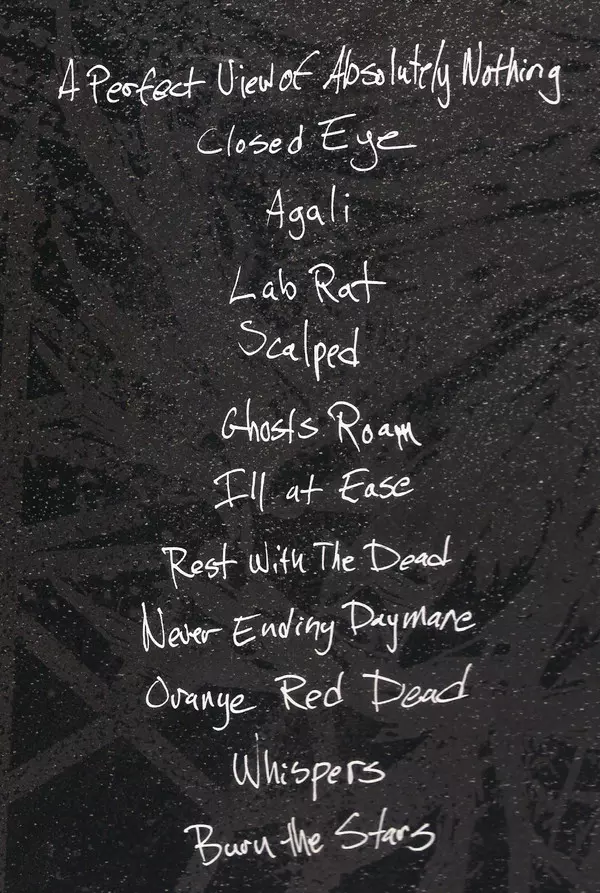 A Perfect View of Absolutely Nothing
Closed Eye
Agali
Lab Rat
Scalped
Ghosts Roam
Ill at Ease
Rest With The Dead
Never Ending Daymare
Orange Red Dead
Whispers
Burn the Stars